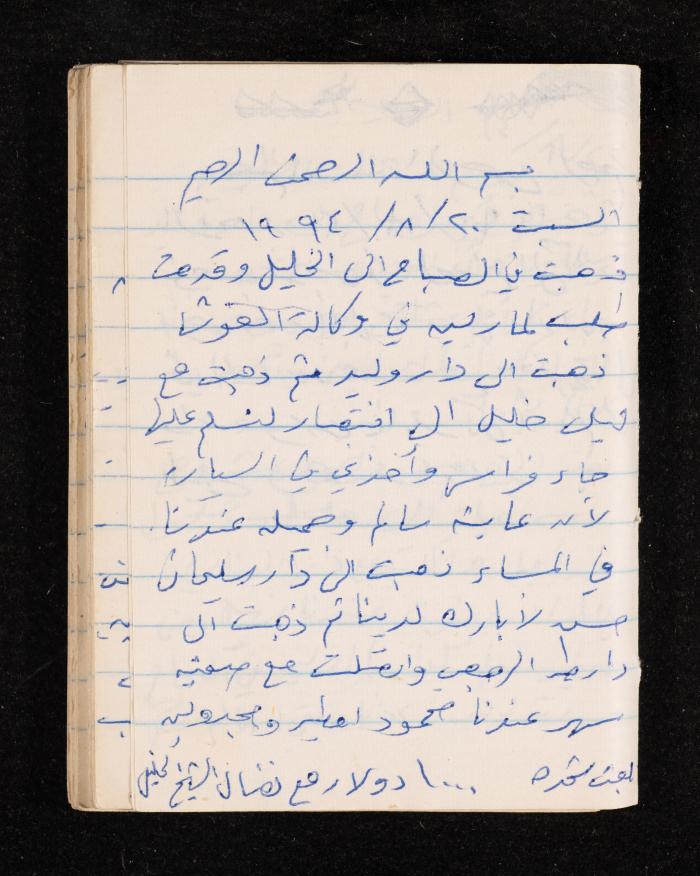 بسم الله الرحمن الرحيم
السبت ٢٠/ ٨/ ١٩٩٤
ذهبت في الصباح الى الخليل وقدمت
طلب لمارلين في وكالة الغوث
ذهبت الى دار وليد ثم ذهبت مع
خليل الى انتصار لنسلم عليها
جاء فراس وأخذني في السيارة
لأن عايشة سالم وجميله عندنا
في المساء ذهبت الى دار سليمان
حسن لأبارك لدينا ثم ذهبت الى
دار الرجعي واتصلت مع صفيه
سهر عندنا محمود امطير ومجدولين
بعثت ١٠٠٠ دولار مع نضال الشيخ الخليل